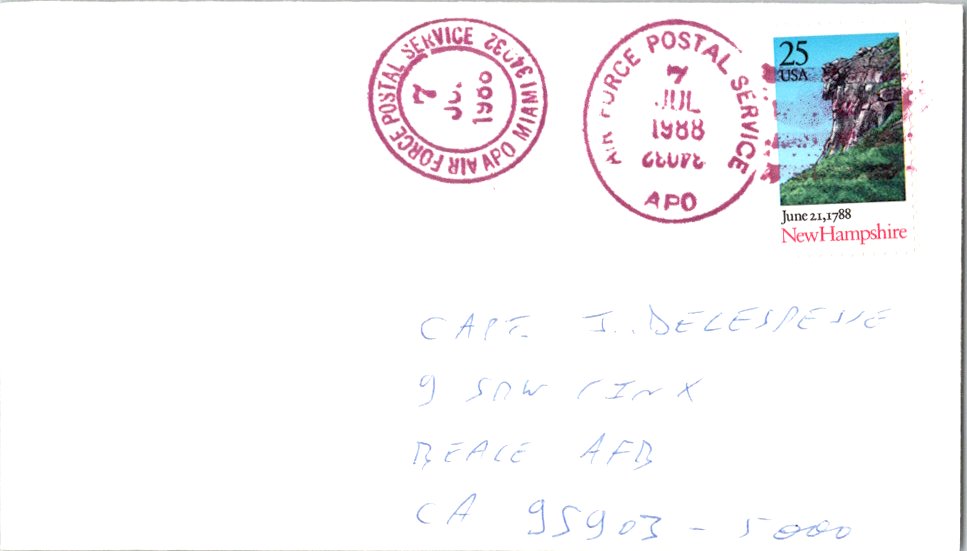 AIR FORCE POSTAL SERVICE
APO MIAMI 34032
7
AIR FORCE POSTAL SERVICE
7
JUL
1988
APO
25
USA
June 21, 1788
New Hampshire
CAPT. J. DELESPESSE
9 SRW
BEALE AFB
CA 95903-5000